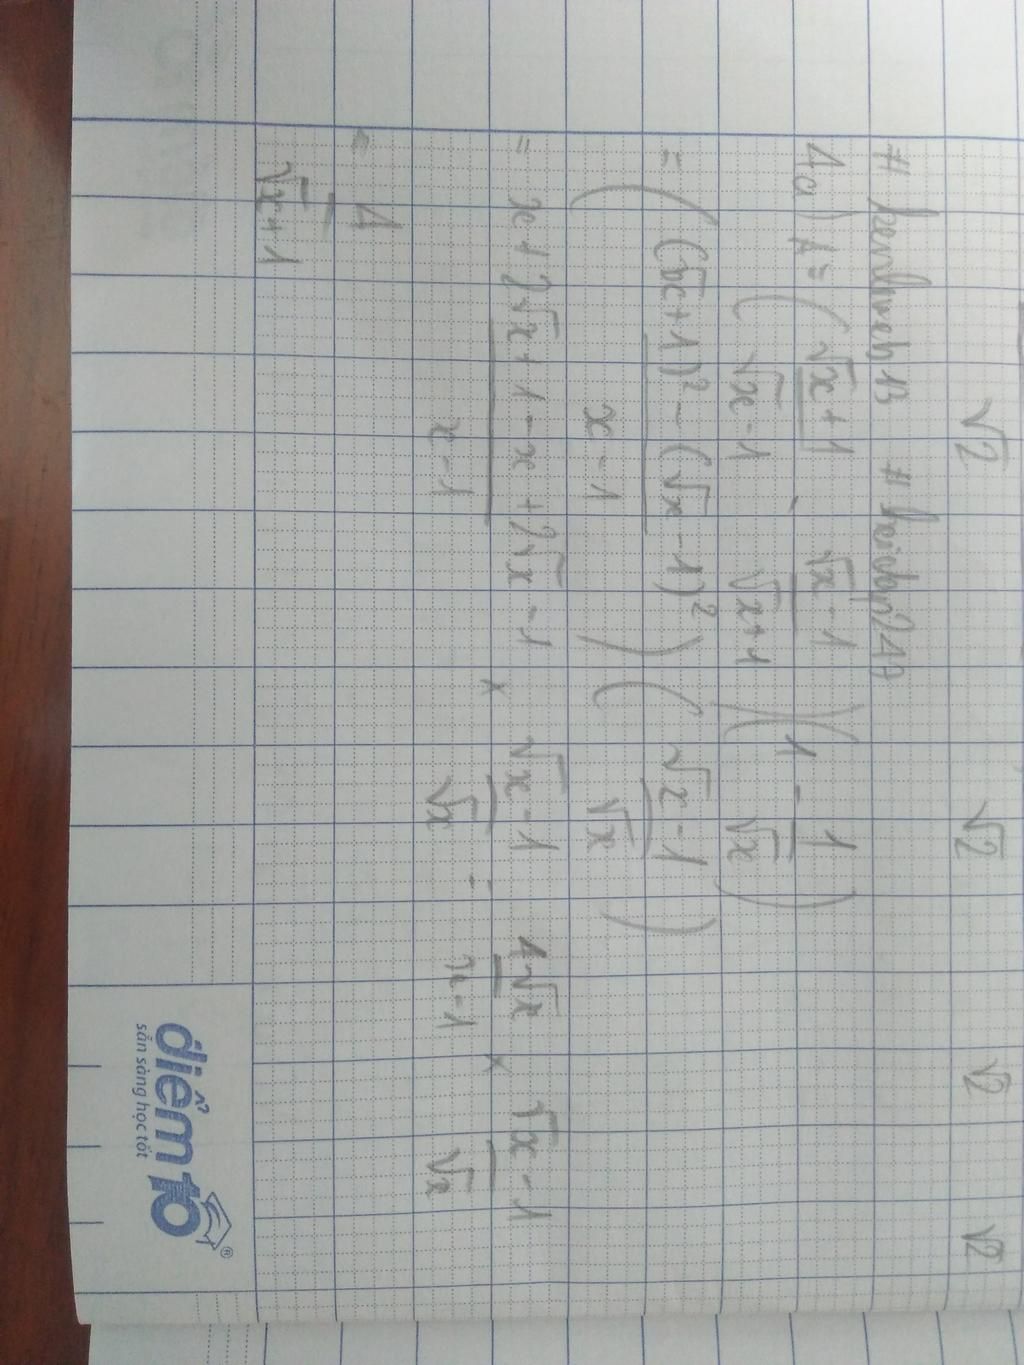 √2 √2 √2 √2
4a) A = ( (√x + 1)/(√x - 1) - (√x - 1)/(√x + 1) ) ( 1 - 1/√x )
= ( ((√x + 1)² - (√x - 1)²)/(x - 1) ) ( (√x - 1)/√x )
= (x + 2√x + 1 - x + 2√x - 1)/(x - 1) × (√x - 1)/√x = 4√x/(x - 1) × (√x - 1)/√x
= 4/(√x + 1)
điểm 10 ®
sẵn sàng học tốt